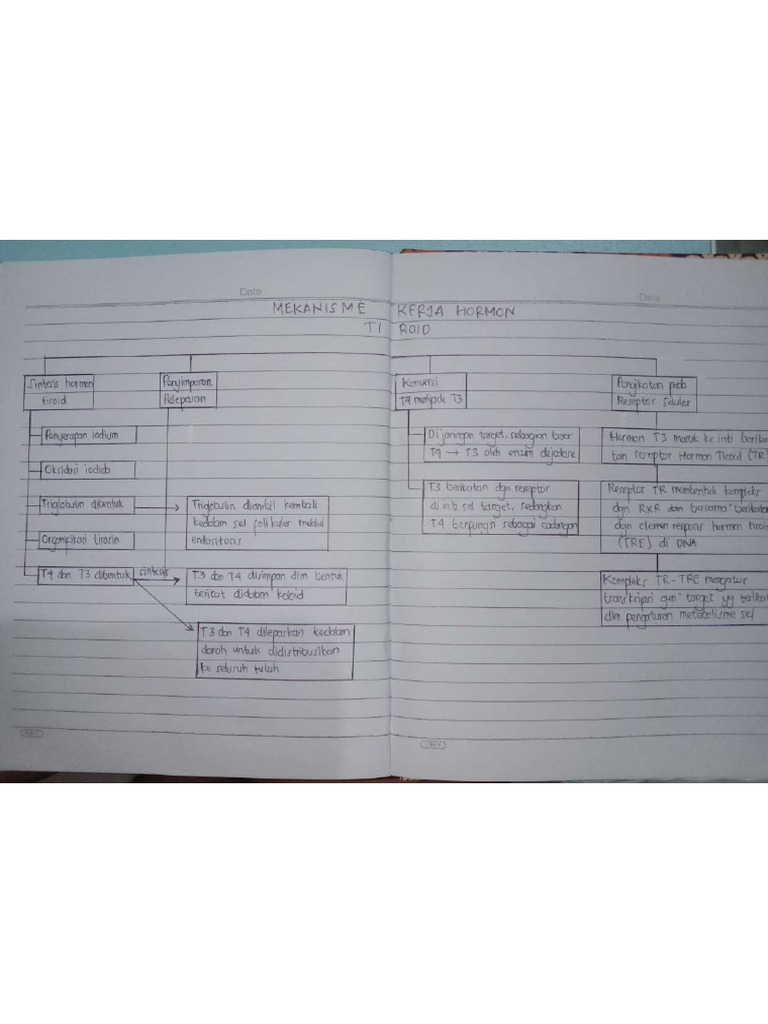 Date
Date
MEKANISME KERJA HORMON
TI ROID
Sintesis hormon
tiroid
Penyimpanan,
Pelepasan
Konversi
T4 menjadi T3
Pengikatan pada
Reseptor Seluler
Penyerapan iodium
Oksidasi iodida
Triglobulin dibentuk
tirosin
T4 dan T3 dibentuk
sintesis
Triglobulin diambil kembali
kedalam sel folikuler melalui
endositosis
T3 dan T4 disimpan dlm bentuk
berikat didalam keloid
T3 dan T4 dilepaskan kedalam
darah untuk didistribusikan
ke seluruh tubuh
Di jaringan target, sebagian besar
T4 → T3 oleh enzim
T3 berikatan dgn reseptor
di inti sel target, sedangkan
T4 berfungsi sebagai cadangan
Hormon T3 masuk ke inti berika
tan reseptor Hormon Tiroid (TR
Reseptor TR membentuk kompleks
dgn RXR dan bersama" berikatan
dgn elemen respons hormon tiroi
(TRE) di DNA
Kompleks TR-TRE mengatur
transkripsi gen" target yg terliba
dlm pengaturan metabolisme sel